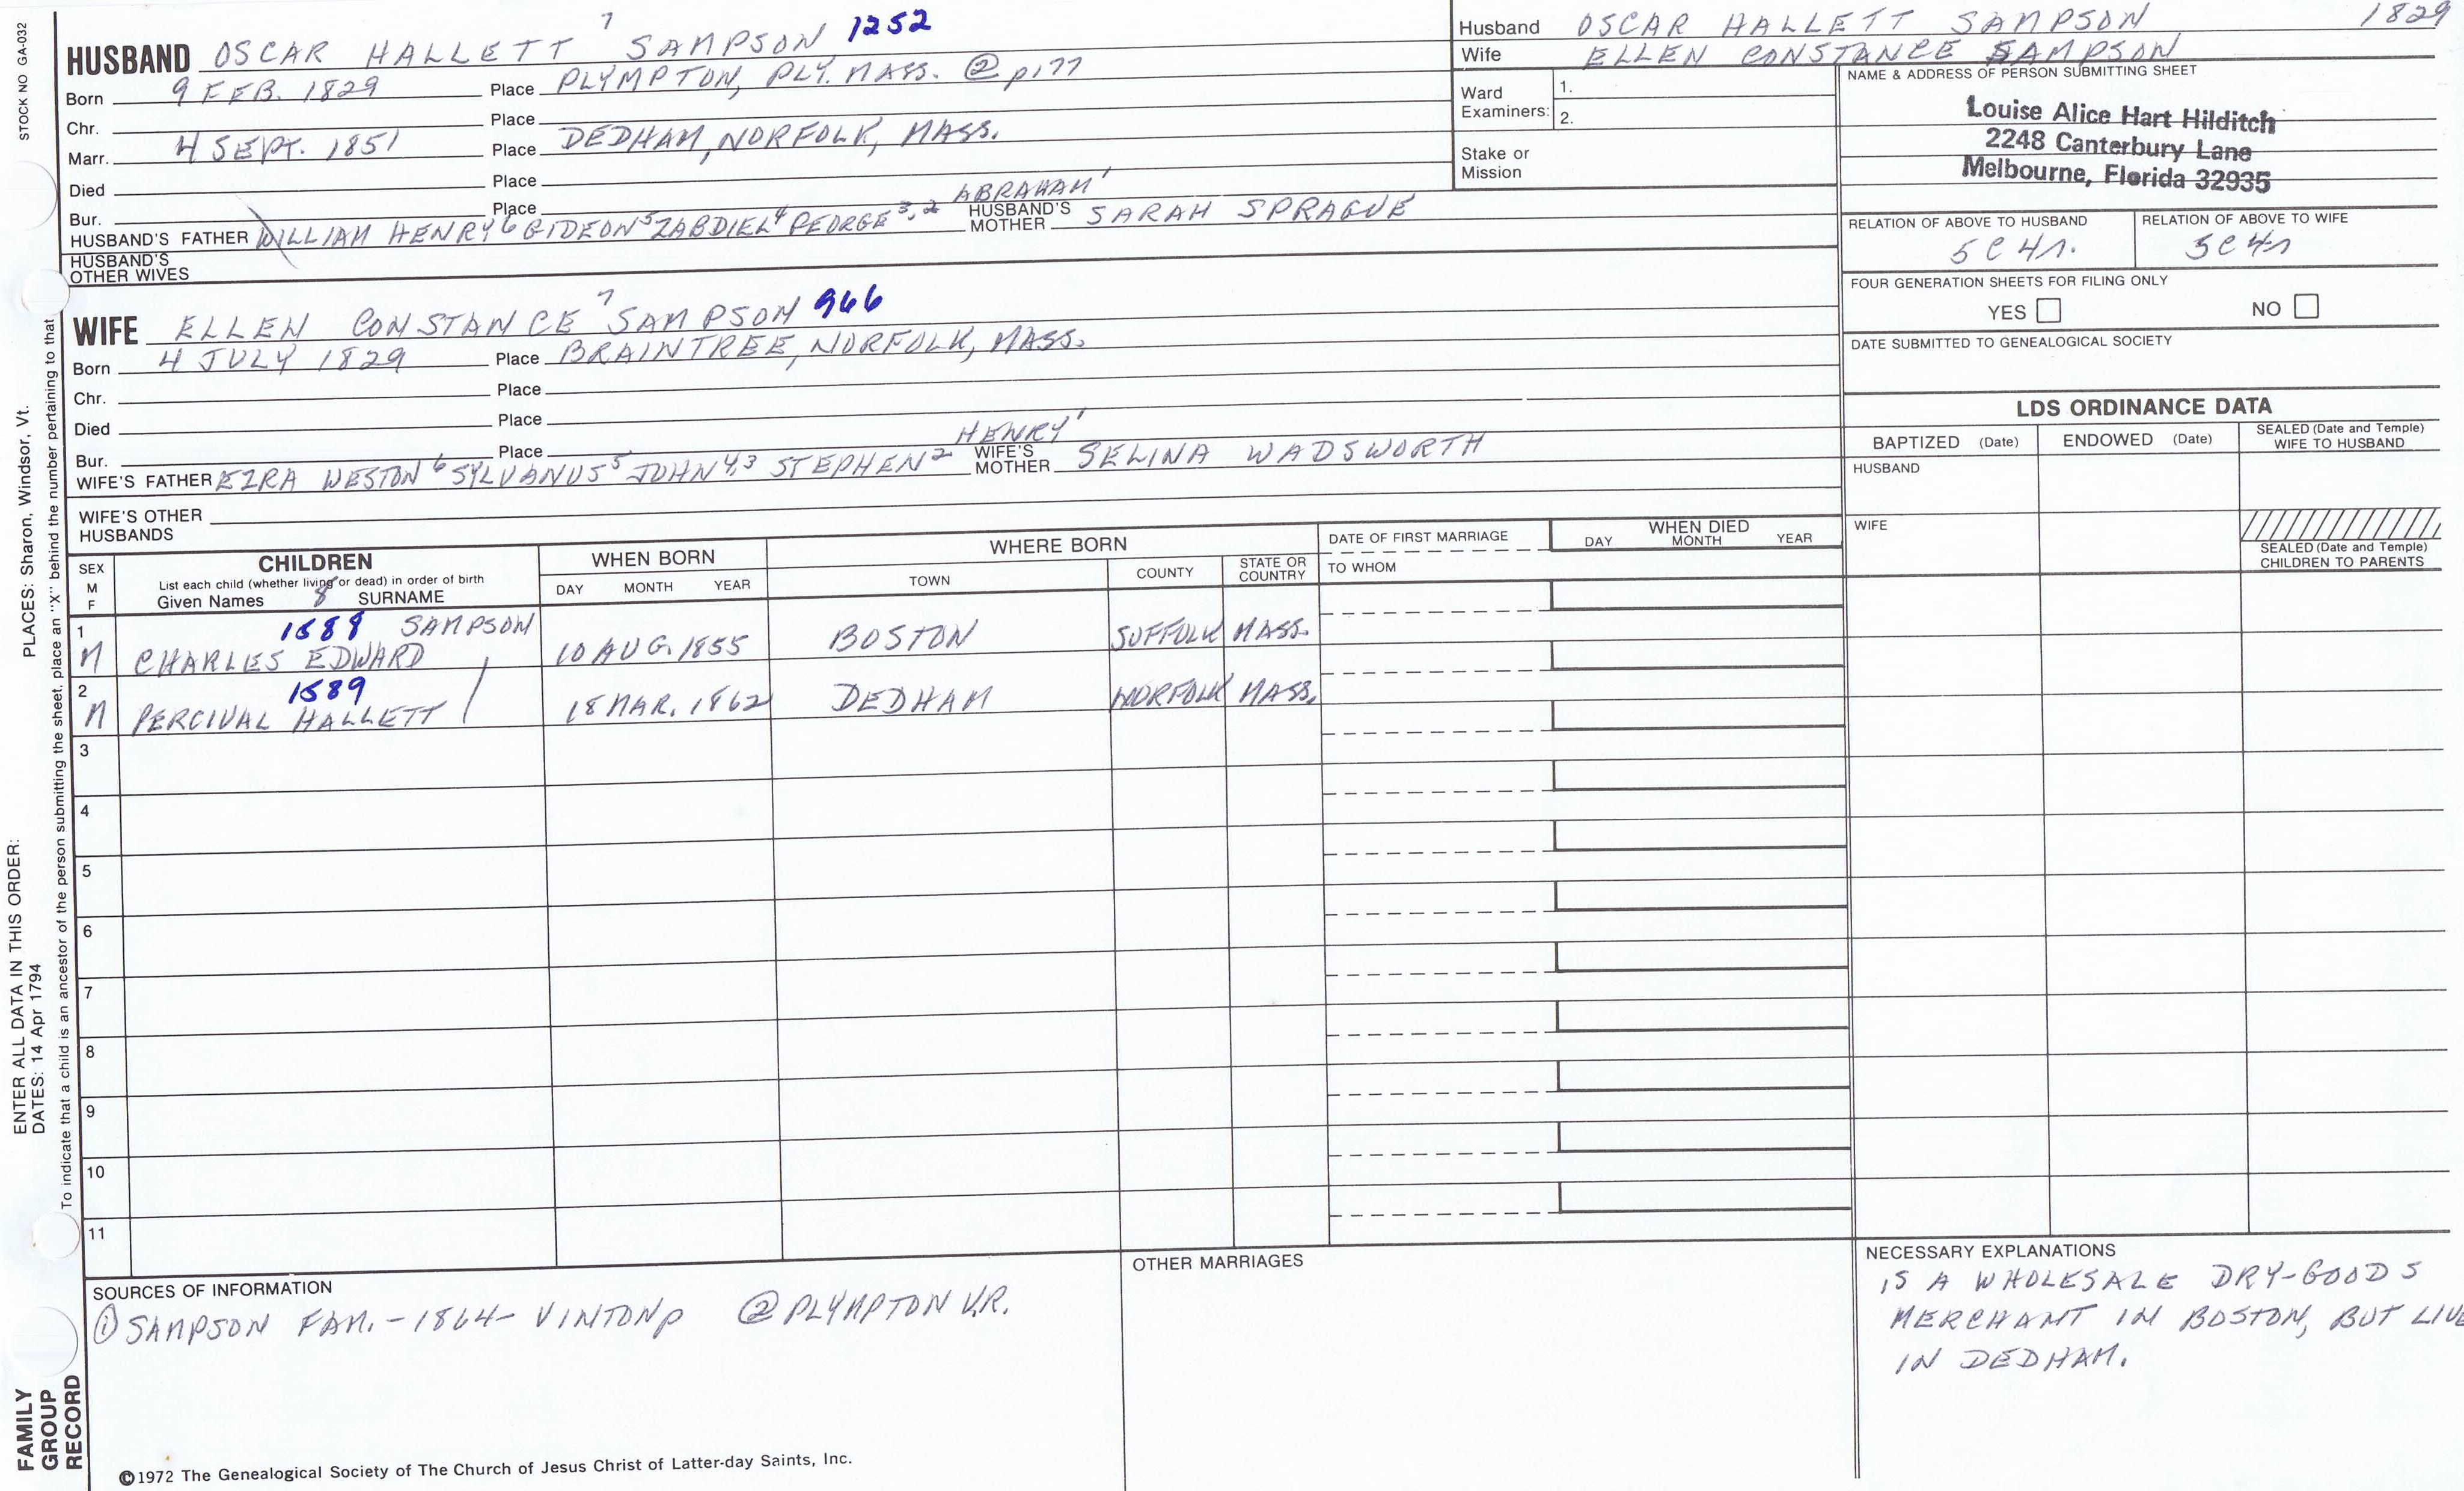 STOCK NO GA-032
HUSBAND OSCAR HALLETT 7 SAMPSON 1252
Born 9 FEB. 1829 Place PLYMPTON, PLY. MASS. ② p177
Chr. Place
Marr. 4 SEPT. 1851 Place DEDHAM, NORFOLK, MASS.
Died Place
Bur. Place ABRAHAM 1
HUSBAND'S FATHER WILLIAM HENRY 6 GIDEON 5 ZABDIEL 4 GEORGE 3,2 HUSBAND'S MOTHER SARAH SPRAGUE
HUSBAND'S OTHER WIVES
WIFE ELLEN CONSTANCE 7 SAMPSON 966
Born 4 JULY 1829 Place BRAINTREE, NORFOLK, MASS.
Chr. Place
Died Place
Bur. Place HENRY 1
WIFE'S FATHER EZRA WESTON 6 SYLVANUS 5 JOHN 4,3 STEPHEN 2 WIFE'S MOTHER SELINA WADSWORTH
WIFE'S OTHER HUSBANDS
Husband OSCAR HALLETT SAMPSON 1829
Wife ELLEN CONSTANCE SAMPSON
Ward Examiners: 1.
2.
Stake or Mission
NAME & ADDRESS OF PERSON SUBMITTING SHEET
Louise Alice Hart Hilditch
2248 Canterbury Lane
Melbourne, Florida 32935
RELATION OF ABOVE TO HUSBAND RELATION OF ABOVE TO WIFE
5C 4r. 5C 4r
FOUR GENERATION SHEETS FOR FILING ONLY
YES NO
DATE SUBMITTED TO GENEALOGICAL SOCIETY
LDS ORDINANCE DATA
BAPTIZED (Date) ENDOWED (Date) SEALED (Date and Temple) WIFE TO HUSBAND
HUSBAND
WIFE
SEALED (Date and Temple) CHILDREN TO PARENTS
SEX M F CHILDREN WHEN BORN WHERE BORN DATE OF FIRST MARRIAGE WHEN DIED
List each child (whether living or dead) in order of birth
Given Names 8 SURNAME DAY MONTH YEAR TOWN COUNTY STATE OR COUNTRY TO WHOM DAY MONTH YEAR
1 1588 SAMPSON
M CHARLES EDWARD 10 AUG. 1855 BOSTON SUFFOLK MASS.
2 1589
M PERCIVAL HALLETT 18 MAR. 1862 DEDHAM NORFOLK MASS.
3
4
5
6
7
8
9
10
11
SOURCES OF INFORMATION
① SAMPSON FAM. - 1864 - VINTON p ② PLYMPTON V.R.
OTHER MARRIAGES
NECESSARY EXPLANATIONS
IS A WHOLESALE DRY-GOODS
MERCHANT IN BOSTON, BUT LIVE
IN DEDHAM.
©1972 The Genealogical Society of The Church of Jesus Christ of Latter-day Saints, Inc.
ENTER ALL DATA IN THIS ORDER:
DATES: 14 Apr 1794 PLACES: Sharon, Windsor, Vt.
To indicate that a child is an ancestor of the person submitting the sheet, place an "X" behind the number pertaining to that
FAMILY
GROUP
RECORD